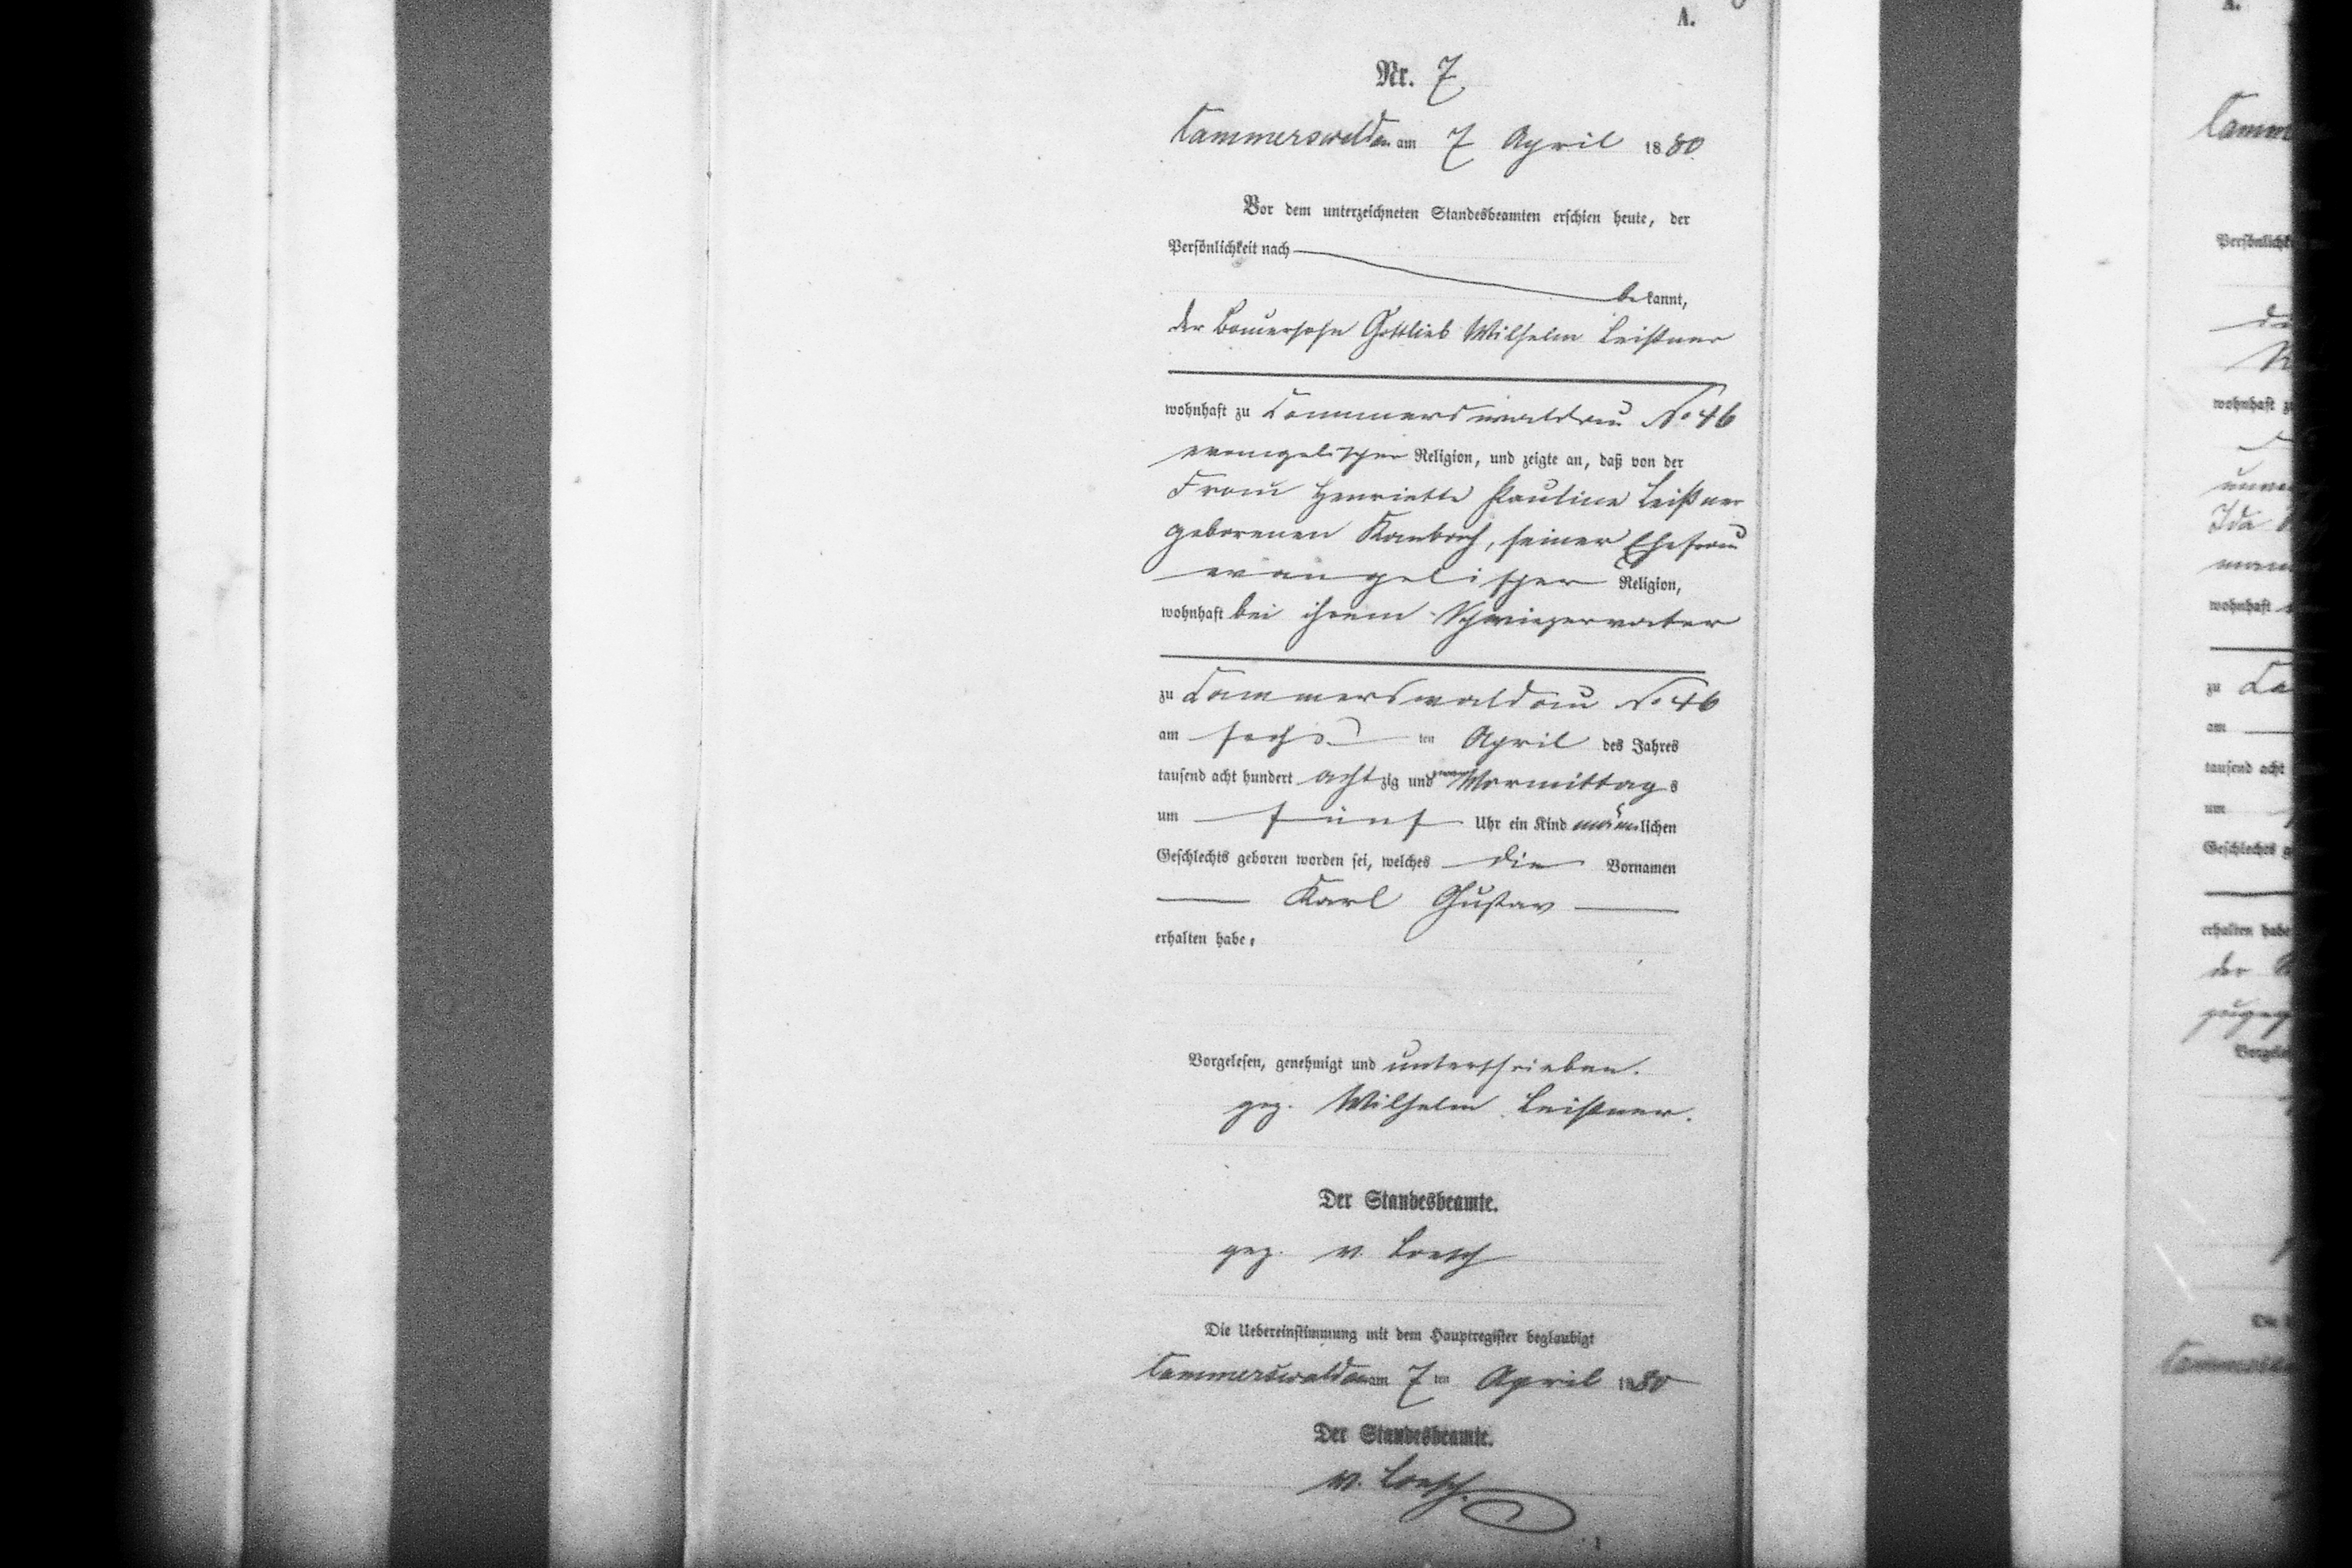 A.
Nr. 7
Cammerswaldau am 7 April 1880
Vor dem unterzeichneten Standesbeamten erschien heute, der
Persönlichkeit nach
bekannt,
der Bauersohn Gottlieb Wilhelm Leißner
wohnhaft zu Cammerswaldau No 46
evangelischer Religion, und zeigte an, daß von der
Frau Henriette Pauline Leißner
geborenen Kambach, seiner Ehefrau
evangelischer Religion,
wohnhaft bei ihrem Schwiegervater
zu Cammerswaldau No 46
am sechsten April des Jahres
tausend acht hundert achtzig und Vormittags
um fünf Uhr ein Kind männlichen
Geschlechts geboren worden sei, welches die Vornamen
Karl Gustav
erhalten habe.
Vorgelesen, genehmigt und unterschrieben.
gez. Wilhelm Leißner.
Der Standesbeamte.
gez. v. Loesch
Die Uebereinstimmung mit dem Hauptregister beglaubigt
Cammerswaldau am 7 ten April 1880
Der Standesbeamte.
v. Loesch.
A.
wohnhaft
Ida
wohnhaft
zu
am
tausend acht
um
erhalten habe
der